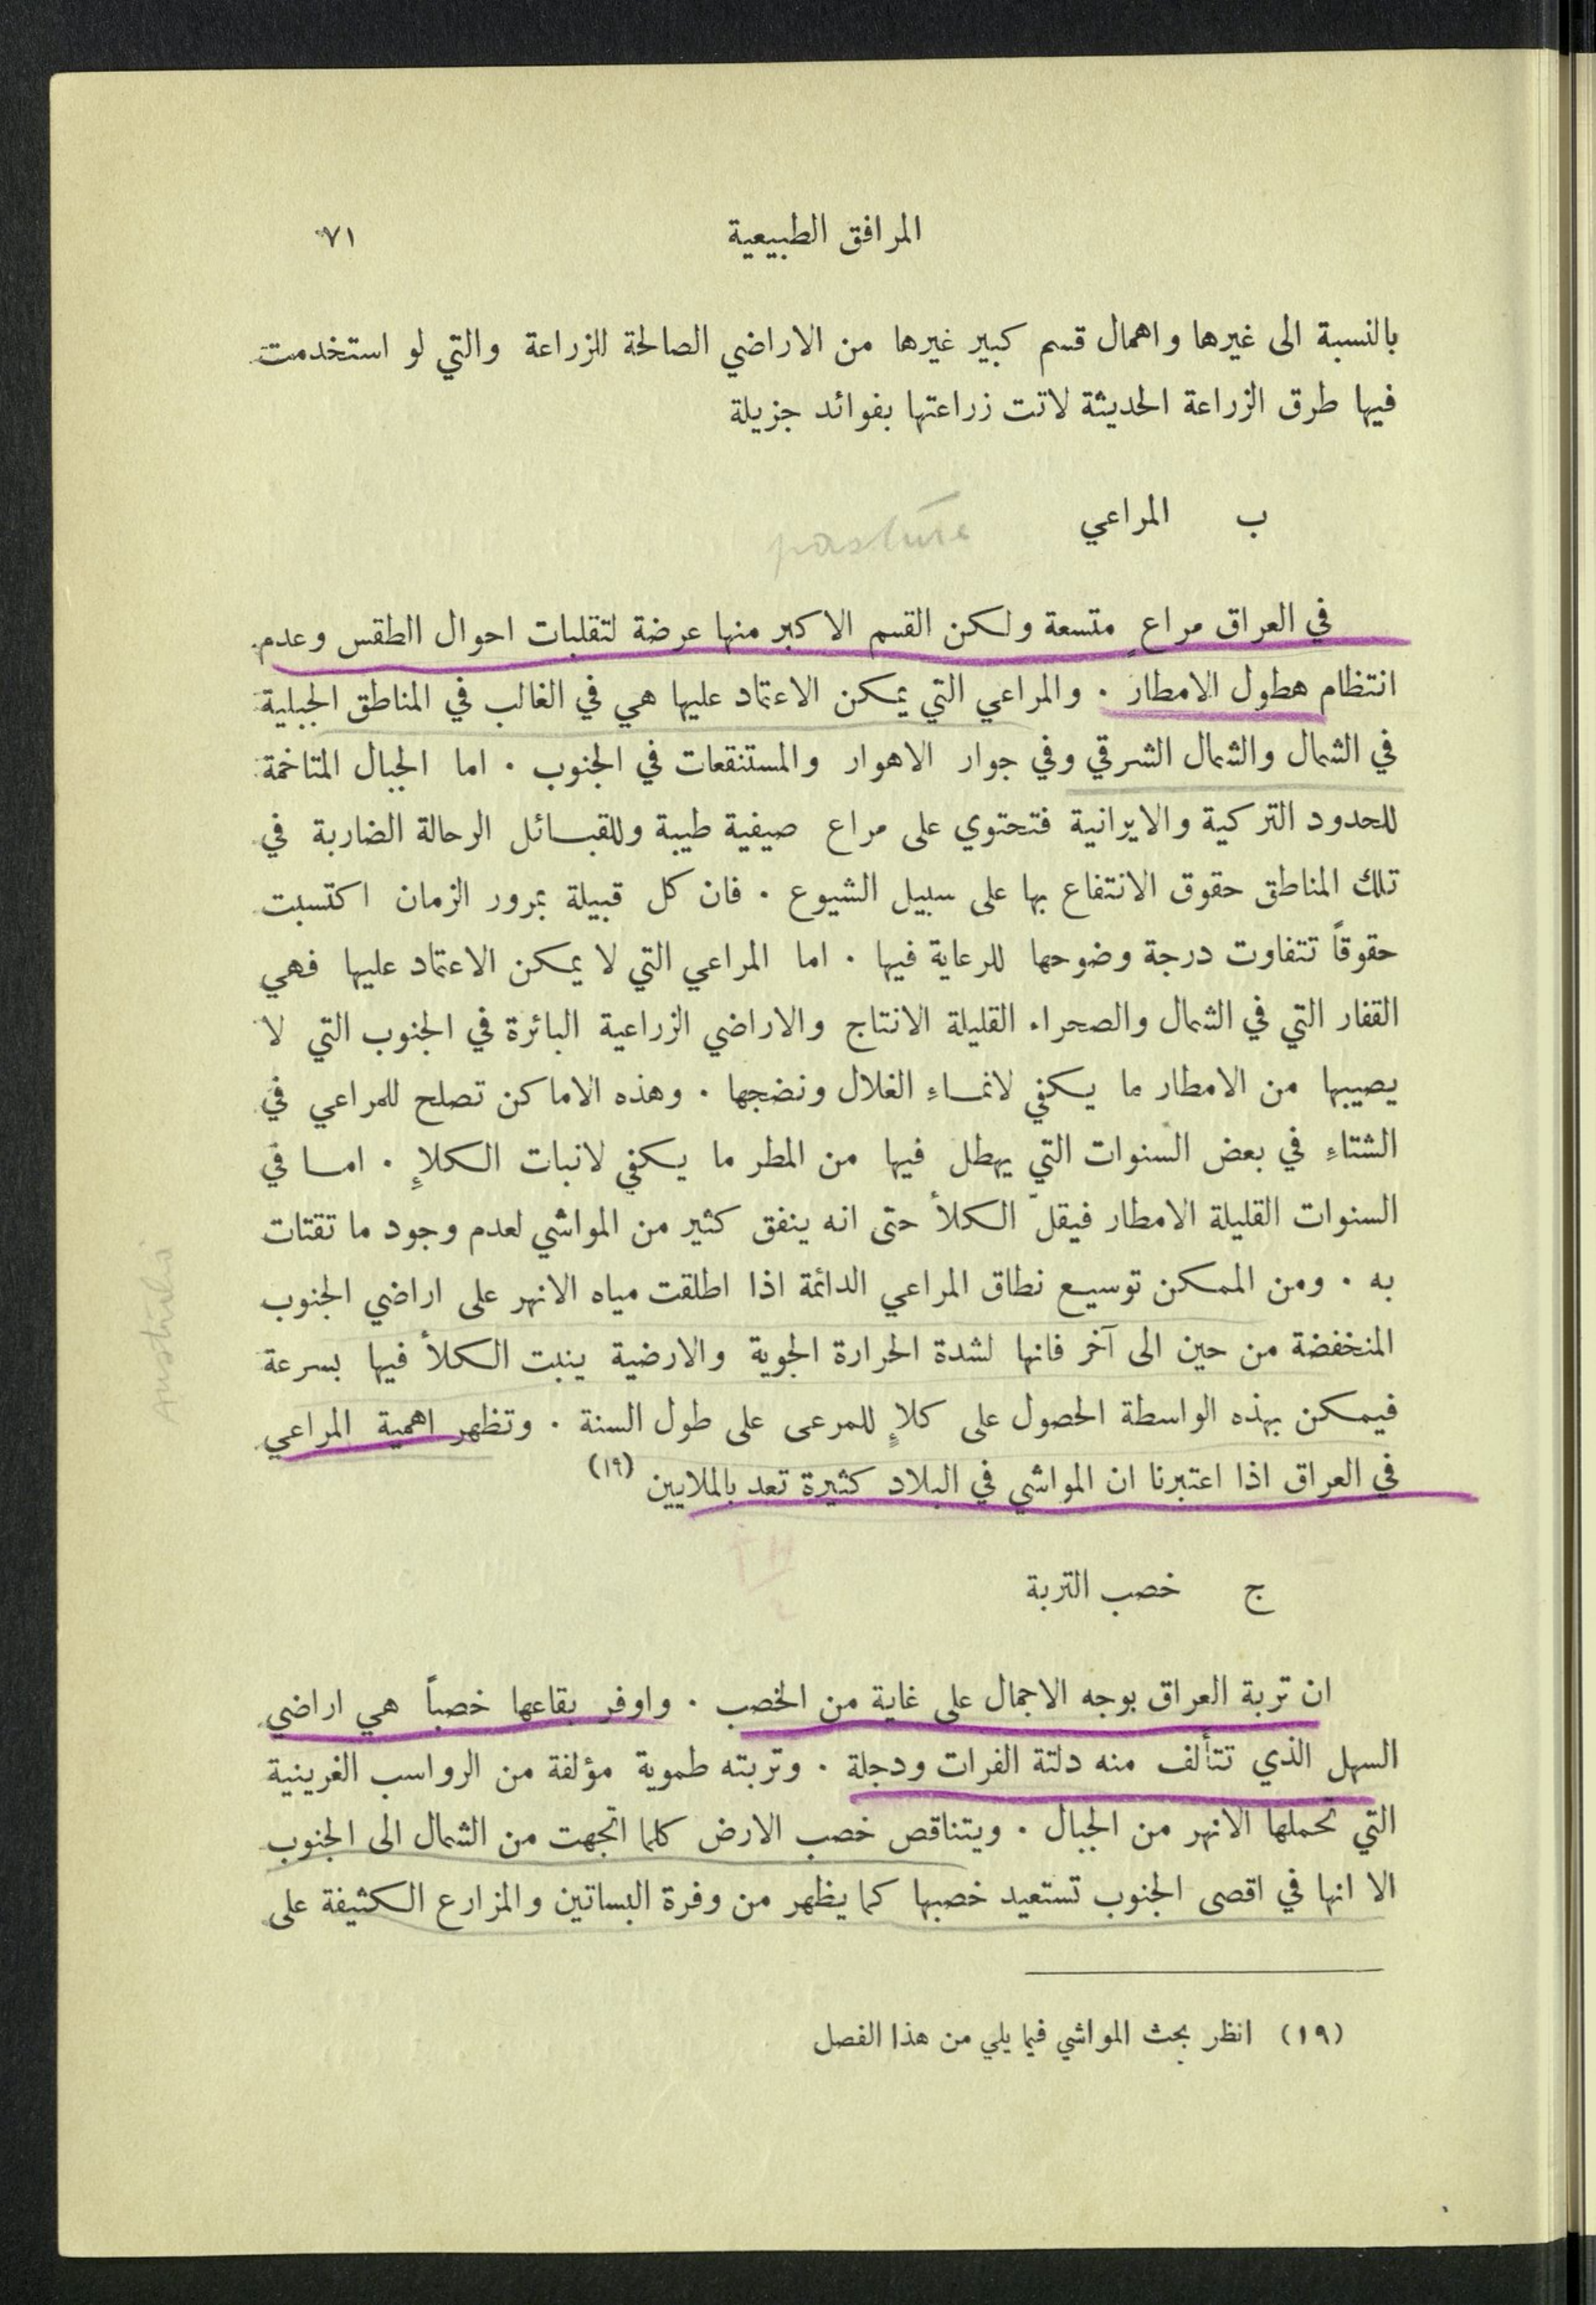 المرافق الطبيعية ٧١
بالنسبة الى غيرها واهمال قسم كبير غيرها من الاراضي الصالحة للزراعة والتي لو استخدمت
فيها طرق الزراعة الحديثة لاتت زراعتها بفوائد جزيلة
ب المراعي pasture
في العراق مراعٍ متسعة ولكن القسم الاكبر منها عرضة لتقلبات احوال الطقس وعدم
انتظام هطول الامطار . والمراعي التي يمكن الاعتماد عليها هي في الغالب في المناطق الجبلية
في الشمال والشمال الشرقي وفي جوار الاهوار والمستنقعات في الجنوب . اما الجبال المتاخمة
للحدود التركية والايرانية فتحتوي على مراع صيفية طيبة وللقبائل الرحالة الضاربة في
تلك المناطق حقوق الانتفاع بها على سبيل الشيوع . فان كل قبيلة بمرور الزمان اكتسبت
حقوقاً تتفاوت درجة وضوحها للرعاية فيها . اما المراعي التي لا يمكن الاعتماد عليها فهي
القفار التي في الشمال والصحراء القليلة الانتاج والاراضي الزراعية البائرة في الجنوب التي لا
يصيبها من الامطار ما يكفي لانماءِ الغلال ونضجها . وهذه الاماكن تصلح للمراعي في
الشتاءِ في بعض السنوات التي يهطل فيها من المطر ما يكفي لانبات الكلإِ . اما في
السنوات القليلة الامطار فيقلّ الكلأ حتى انه ينفق كثير من المواشي لعدم وجود ما تقتات
به . ومن الممكن توسيع نطاق المراعي الدائمة اذا اطلقت مياه الانهر على اراضي الجنوب
المنخفضة من حين الى آخر فانها لشدة الحرارة الجوية والارضية ينبت الكلأ فيها بسرعة
فيمكن بهذه الواسطة الحصول على كلإٍ للمرعى على طول السنة . وتظهر اهمية المراعي
في العراق اذا اعتبرنا ان المواشي في البلاد كثيرة تعد بالملايين (١٩)
ج خصب التربة
ان تربة العراق بوجه الاجمال على غاية من الخصب . واوفر بقاعها خصباً هي اراضي
السهل الذي تتألف منه دلتة الفرات ودجلة . وتربته طموية مؤلفة من الرواسب الغرينية
التي تحملها الانهر من الجبال . ويتناقص خصب الارض كلما اتجهت من الشمال الى الجنوب
الا انها في اقصى الجنوب تستعيد خصبها كما يظهر من وفرة البساتين والمزارع الكثيفة على
(١٩) انظر بحث المواشي فيما يلي من هذا الفصل